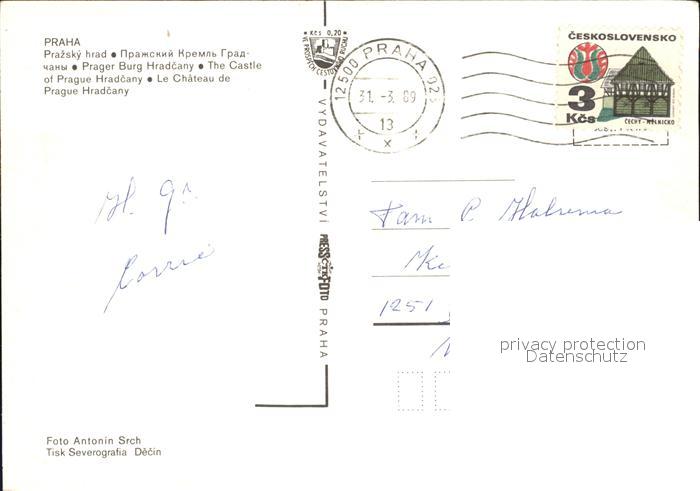 PRAHA
Pražský hrad ● Пражский Кремль Град-
чаны ● Prager Burg Hradčany ● The Castle
of Prague Hradčany ● Le Château de
Prague Hradčany
Kčs 0,20
12500 PRAHA 025
31.-3.89
13
x
ČESKOSLOVENSKO
3
Kčs
ČECHY-MĚLNICKO
VYDAVATELSTVÍ
PRESSFOTO
PRAHA
H. Gr.
Corrie
Fam P. Halsema
1251
privacy protection
Datenschutz
Foto Antonín Srch
Tisk Severografia Děčín